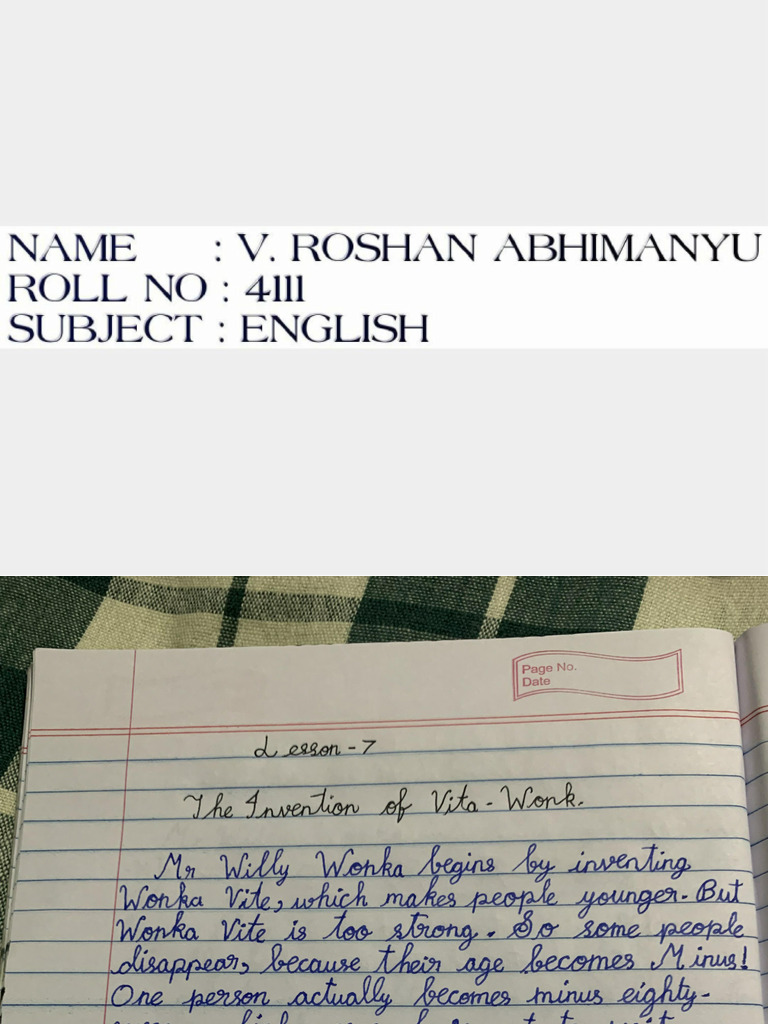 NAME : V. ROSHAN ABHIMANYU
ROLL NO : 4111
SUBJECT : ENGLISH
Page No.
Date
Lesson - 7
The Invention of Vita - Wonk.
Mr Willy Wonka begins by inventing
Wonka Vite, which makes people younger. But
Wonka Vite is too strong. So some people
disappear, because their age becomes Minus!
One person actually becomes minus eighty-